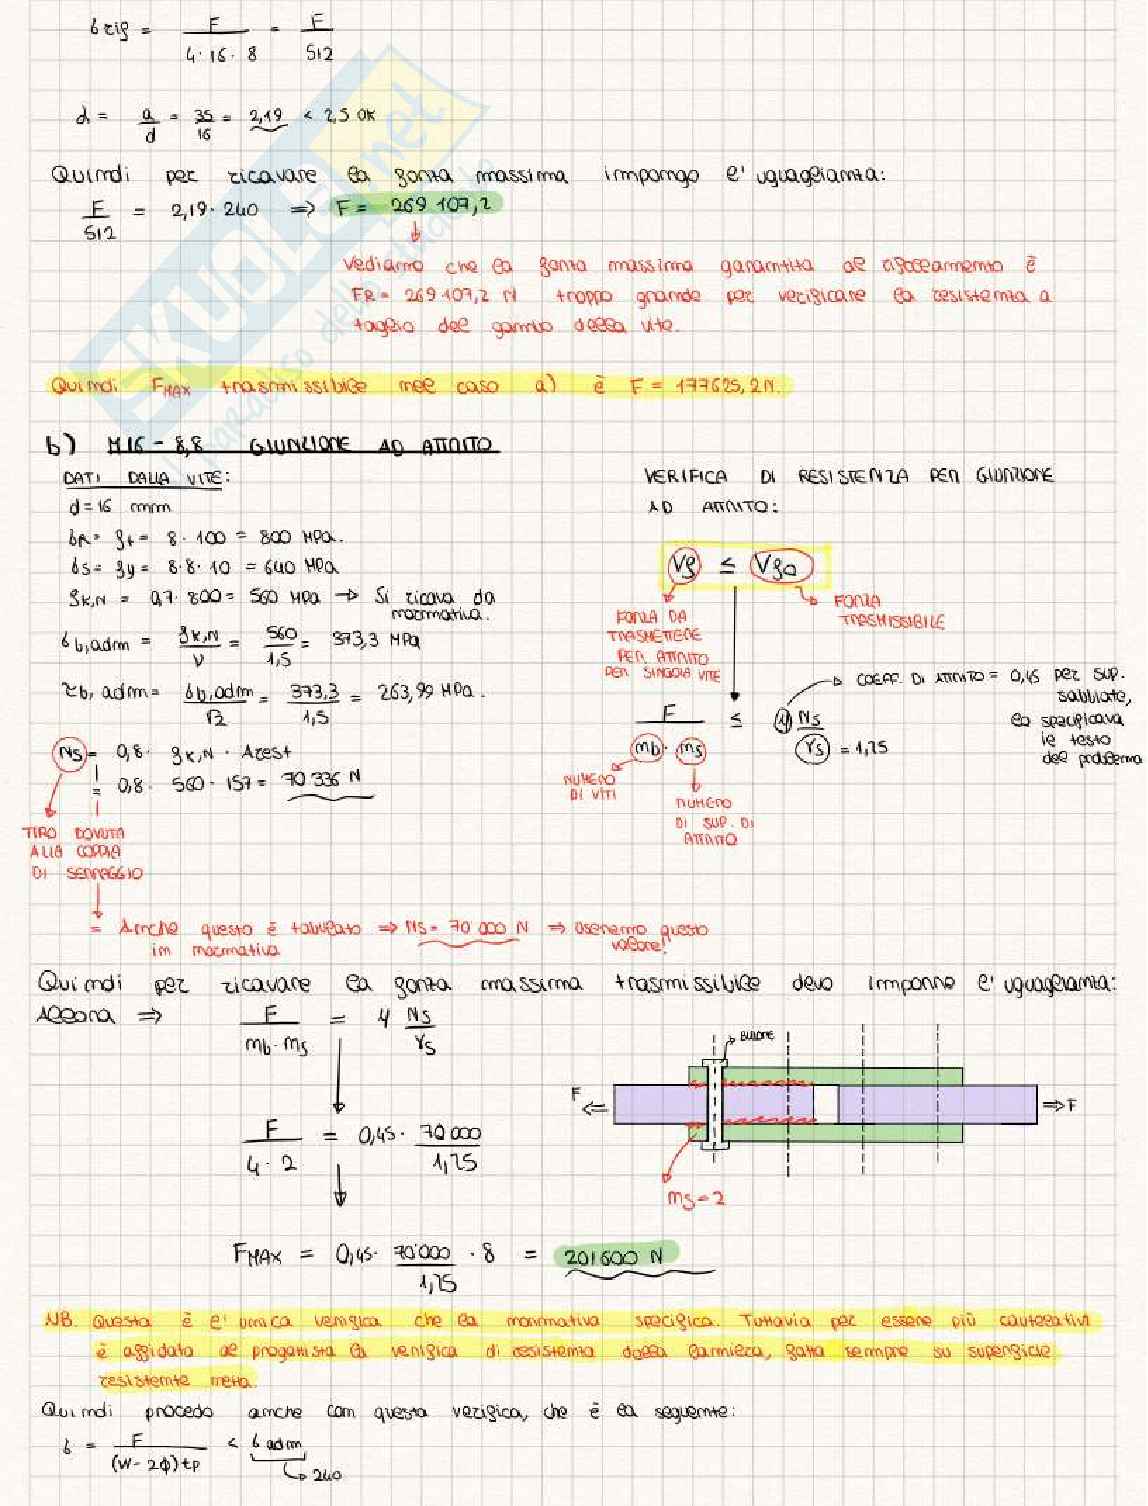 σ rif = F / 4·16·8 = F / 512
α = a/d = 35/16 = 2,19 < 2,5 OK
Quindi per ricavare la forza massima impongo l'uguaglianza:
F/512 = 2,19·240 ⇒ F = 269 107,2
Vediamo che la forza massima garantita al rifollamento è
FR = 269 107,2 N troppo grande per verificare la resistenza a
taglio del gambo della vite.
Quindi FMAX trasmissibile nel caso a) è F = 177625,2 N.
b) M16 - 8,8 GIUNZIONE AD ATTRITO
DATI DALLA VITE:
d = 16 mm
σR = ft = 8·100 = 800 MPa.
σS = fy = 8·8·10 = 640 MPa
fK,N = 0,7·800 = 560 MPa → Si ricava da
normativa.
σb,adm = fK,N / ν = 560 / 1,5 = 373,3 MPa
τb,adm = σb,adm / √2 = 373,3 / 1,5 = 263,99 MPa.
Ns = 0,8 · fK,N · Arest
= 0,8 · 560 · 157 = 70 336 N
TIRO DOVUTA
ALLA COPPIA
DI SERRAGGIO
= Anche questo è tabulato ⇒ Ns = 70 000 N ⇒ useremo questo
in normativa valore!
VERIFICA DI RESISTENZA PER GIUNZIONE
AD ATTRITO:
Vf ≤ Vfo
FORZA DA
TRASMETTERE
PER ATTRITO
PER SINGOLA VITE
FORZA
TRASMISSIBILE
F / mb · ms ≤ μ Ns / γs = 1,25
COEFF. DI ATTRITO = 0,45 per sup.
sabbiate,
lo specificava
il testo
del problema
NUMERO
DI VITI
NUMERO
DI SUP. DI
ATTRITO
Quindi per ricavare la forza massima trasmissibile devo imporre l'uguaglianza:
Allora ⇒ F / mb·ms = μ Ns / γs
F / 4·2 = 0,45 · 70 000 / 1,25
FMAX = 0,45 · 70'000 / 1,25 · 8 = 201600 N
BULLONE
F ⇐
⇒ F
ms = 2
NB. Questa è l'unica verifica che la normativa specifica. Tuttavia per essere più cautelativi
è affidato al progettista la verifica di resistenza della lamiera, fatta sempre su superficie
resistente netta.
Quindi procedo anche con questa verifica, che è la seguente:
σ = F / (W - 2φ) tp < σ adm
→ 240
SKUOLA.net
il paradiso dello studente